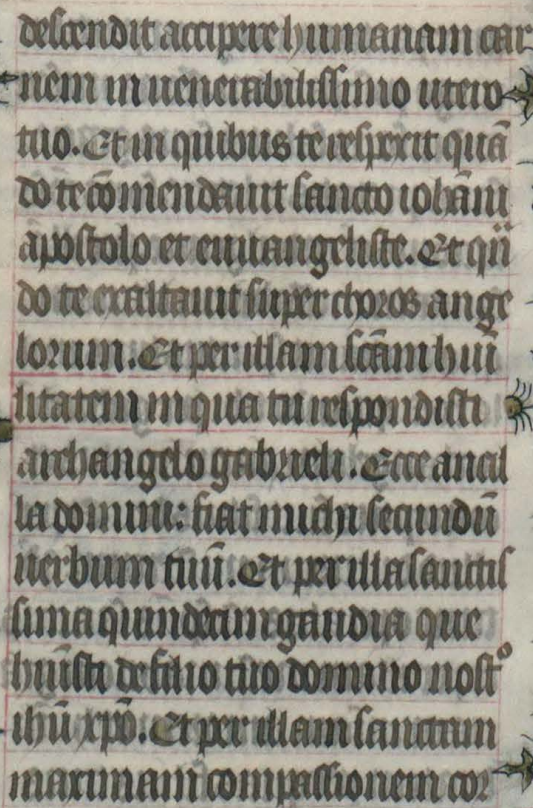 descendit accipere humanam car
nem in uenerabilissimo utero
tuo. Et in quibus te respexit quā
do te cōmendauit sancto iohāni
apostolo et euuangeliste. Et qū
do te exaltauit super choros ange
lorum. Et per illam sc̄am hūi
litatem in qua tu respondisti
archangelo gabrieli. Ecce ancil
la domini: fiat michi secundū
uerbum tuū. Et per illa sanctis
sima quindecim gaudia que
hūisti de filio tuo domino nostº
ihū xpō. Et per illam sanctam
maximam compassionem cor